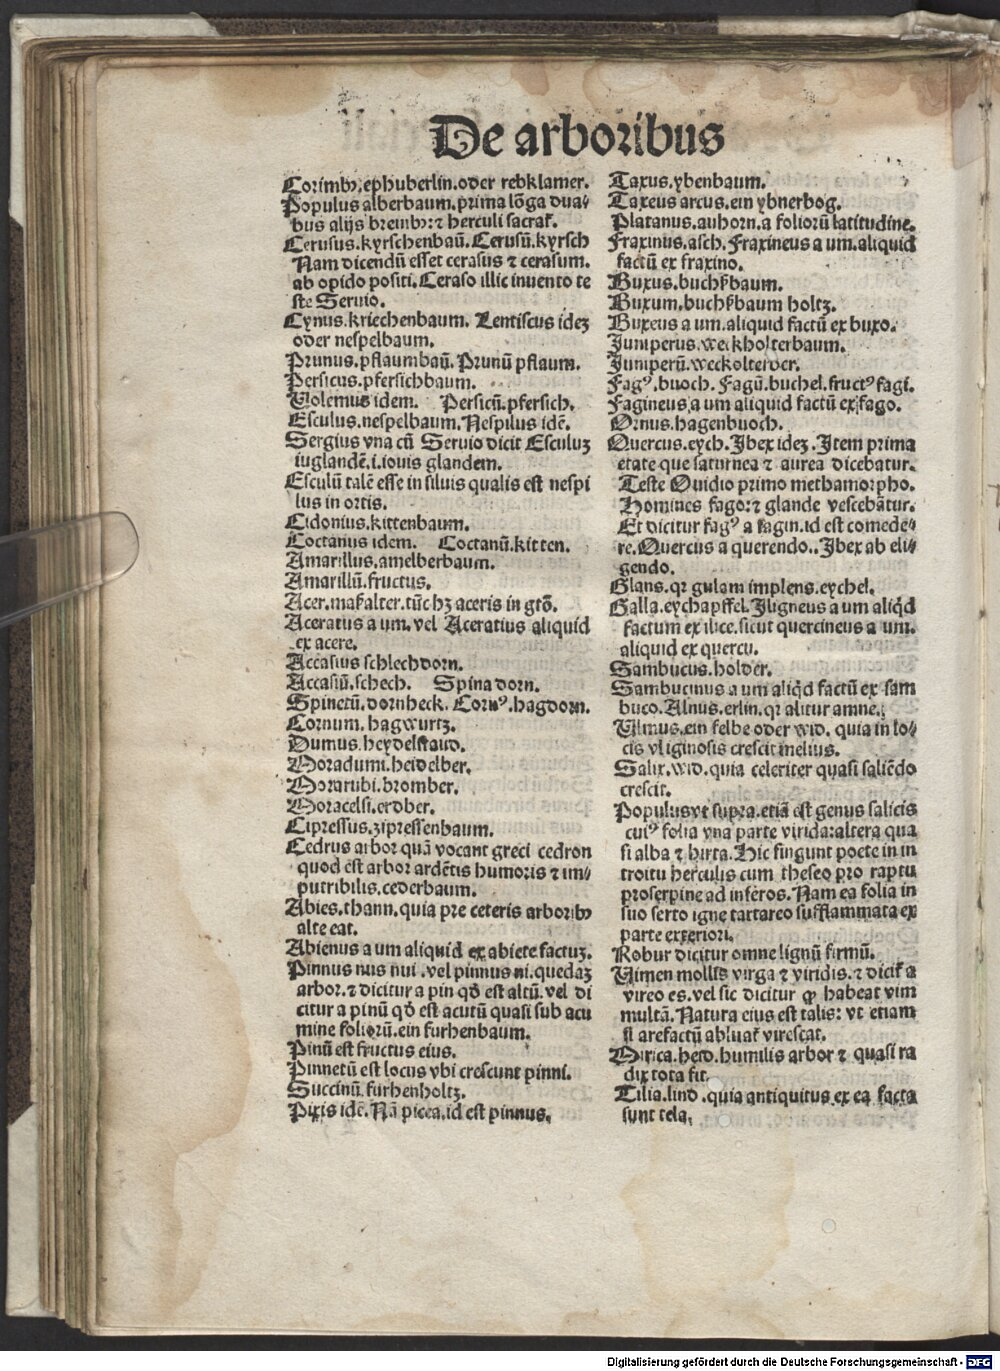 De arboribus
Corimbꝰ, ephuberlin. oder rebklamer.
Populus alberbaum. prima lōga dua⸗
bus alijs breuibꝰ: ⁊ herculi sacraꝉ.
Cerusus. kyrschenbaū. Cerusū. kyrsch
Nam dicendū esset cerasus ⁊ cerasum.
ab opido positi. Ceraso illic inuento te
ste Seruio.
Cynus. kriechenbaum. Lentiscus ideꝫ
oder nespelbaum.
Prunus. pflaumbaū. Prunū pflaum.
Persicus. pfersichbaum.
Volemus idem. Persicū. pfersich.
Esculus. nespelbaum. Nespilus idē.
Sergius vna cū Seruio dicit Esculuꝫ
iuglandē. i. iouis glandem.
Esculū talē esse in siluis qualis est nespi
lus in ortis.
Cidonius. kittenbaum.
Coctanus idem. Coctanū. kitten.
Amarillus. amelberbaum.
Amarillū. fructus.
Acer. maßalter. tūc hꝫ aceris in gtō.
Aceratus a um. vel Aceratius aliquid
ex acere.
Accasius schlechdorn.
Accasiū. schech. Spina dorn.
Spinetū. dornheck. Cornꝰ. hagdorn.
Cornum. hagwurtz.
Dumus. heydelstaud.
Moradumi. heidelber.
Morarubi. bromber.
Moracelsi. erdber.
Cipressus. zipressenbaum.
Cedrus arbor quā vocant greci cedron
quod est arbor ardētis humoris ⁊ im⸗
putribilis. cederbaum.
Abies. thann. quia pre ceteris arboribꝰ
alte eat.
Abienus a um aliquid ex abiete factuꝫ.
Pinnus nus nui. vel pinnus ni. quedaꝫ
arbor. ⁊ dicitur a pin qd̄ est altū. vel di
citur a pinū qd̄ est acutū quasi sub acu
mine foliorū. ein furhenbaum.
Pinū est fructus eius.
Pinnetū est locus vbi crescunt pinni.
Succinū. furhenholtz.
Pixis idē. Nā picea. id est pinnus.
Taxus. ybenbaum.
Taxeus arcus. ein ybnerbog.
Platanus. auhorn. a foliorū latitudine.
Fraxinus. asch. Fraxineus a um. aliquid
factū ex fraxino.
Buxus. buchßbaum.
Buxum. buchßbaum holtz.
Buxeus a um. aliquid factū ex buxo.
Juniperus. weckholterbaum.
Juniperū. weckolterber.
Fagꝰ. buoch. Fagū. buchel. fructꝰ fagi.
Fagineus a um aliquid factū ex fago.
Ornus. hagenbuoch.
Quercus. eych. Ibex ideꝫ. Item prima
etate que saturnea ⁊ aurea dicebatur.
Teste Ouidio primo methamorpho.
Homines fago: ⁊ glande vescebātur.
Et dicitur fagꝰ a fagin. id est comede⸗
re. Quercus a querendo.. Ibex ab eli⸗
gendo.
Glans. qr gulam implens. eychel.
Galla. eychapffel. Iligneus a um aliqd
factum ex ilice. sicut quercineus a um.
aliquid ex quercu.
Sambucus. holder.
Sambucinus a um aliqd factū ex sam
buco. Alnus. erlin. qr alitur amne.
Vlmus. ein felbe oder wid. quia in lo⸗
cis vliginosis crescit melius.
Salix. wid. quia celeriter quasi saliēdo
crescit.
Populus vt supra. etiā est genus salicis
cuiꝰ folia vna parte virida: altera qua
si alba ⁊ hirta. Hic fingunt poete in in
troitu herculis cum theseo pro raptu
proserpine ad inferos. Nam ea folia in
suo serto igne tartareo sufflammata ex
parte exteriori.
Robur dicitur omne lignū firmū.
Vimen mollis virga ⁊ viridis. ⁊ diciꝉ a
vireo es. vel sic dicitur ꝙ habeat vim
multā. Natura eius est talis: vt etiam
si arefactū abluaꝉ virescat.
Mirica. heid. humilis arbor ⁊ quasi ra
dix tota fit.
Tilia. lind. quia antiquitus ex ea facta
sunt tela.
Digitalisierung gefördert durch die Deutsche Forschungsgemeinschaft - DFG